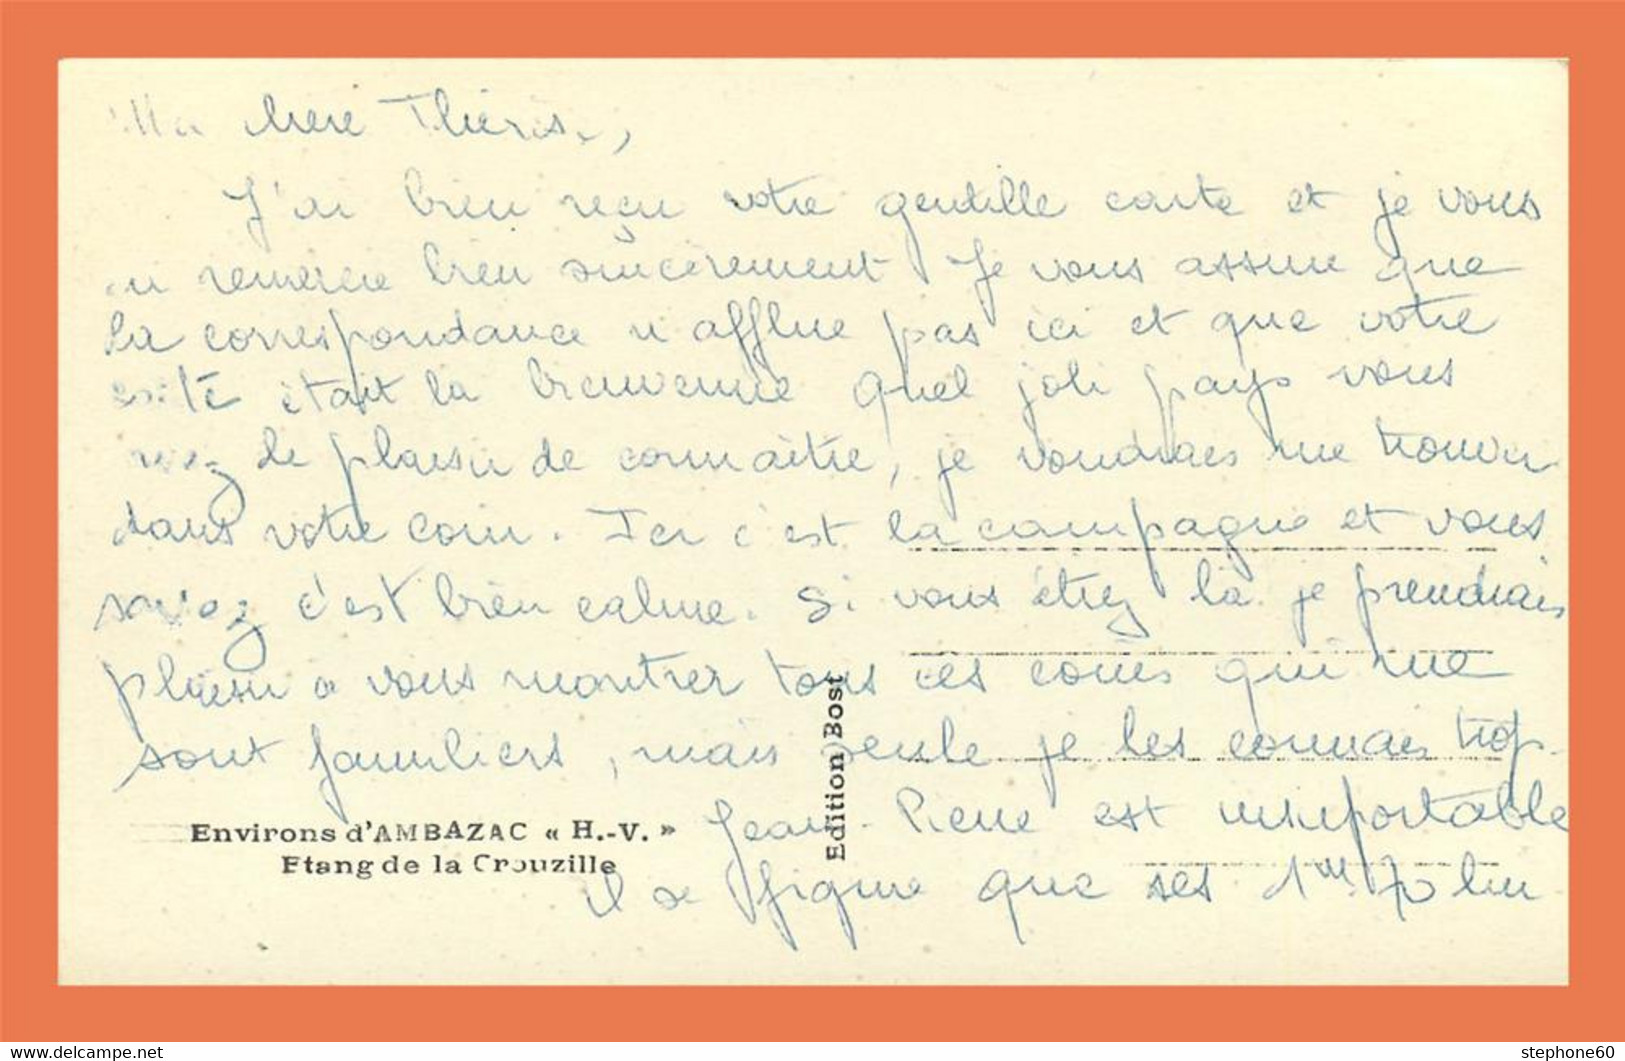 Ma chère Thérèse,
J'ai bien reçu votre gentille carte et je vous
en remercie bien sincèrement Je vous assure que
la correspondance n'afflue pas ici et que votre
était la bienvenue Quel joli pays vous
le plaisir de connaitre, je voudrais me trouver
dans votre coin. Ici c'est la campagne et vous
savez c'est bien calme. Si vous étiez là je prendrais
plaisir a vous montrer tous ces coins qui me
sont familiers, mais seule je les connais trop.
Jean-Pierre est insuportable
il se figure que ses 1m 70 lui
Environs d'AMBAZAC « H.-V. »
Etang de la Crouzille
Edition Bost
stephone60